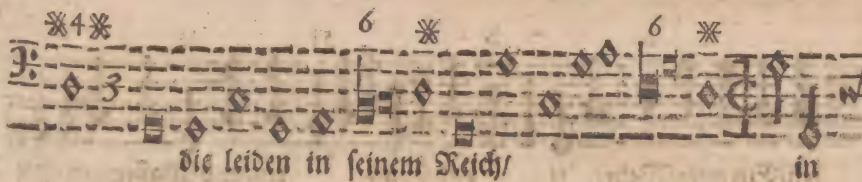 ※4※ 6 ※ 6 ※
3
die leiden in ſeinem Reich/ in